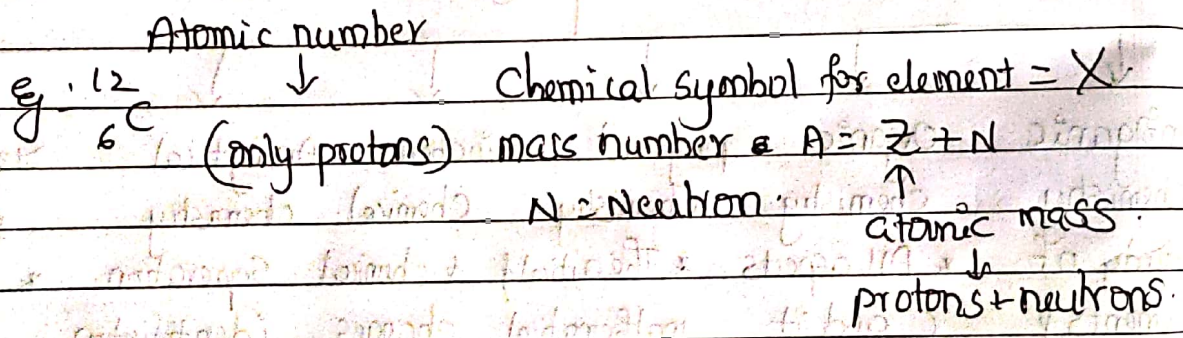 Atomic number
Eg. 12 6 C ↓ Chemical symbol for element = X.
(only protons) mass number A = Z + N
N = Neutron. ↑
atomic mass.
↓
protons + neutrons.